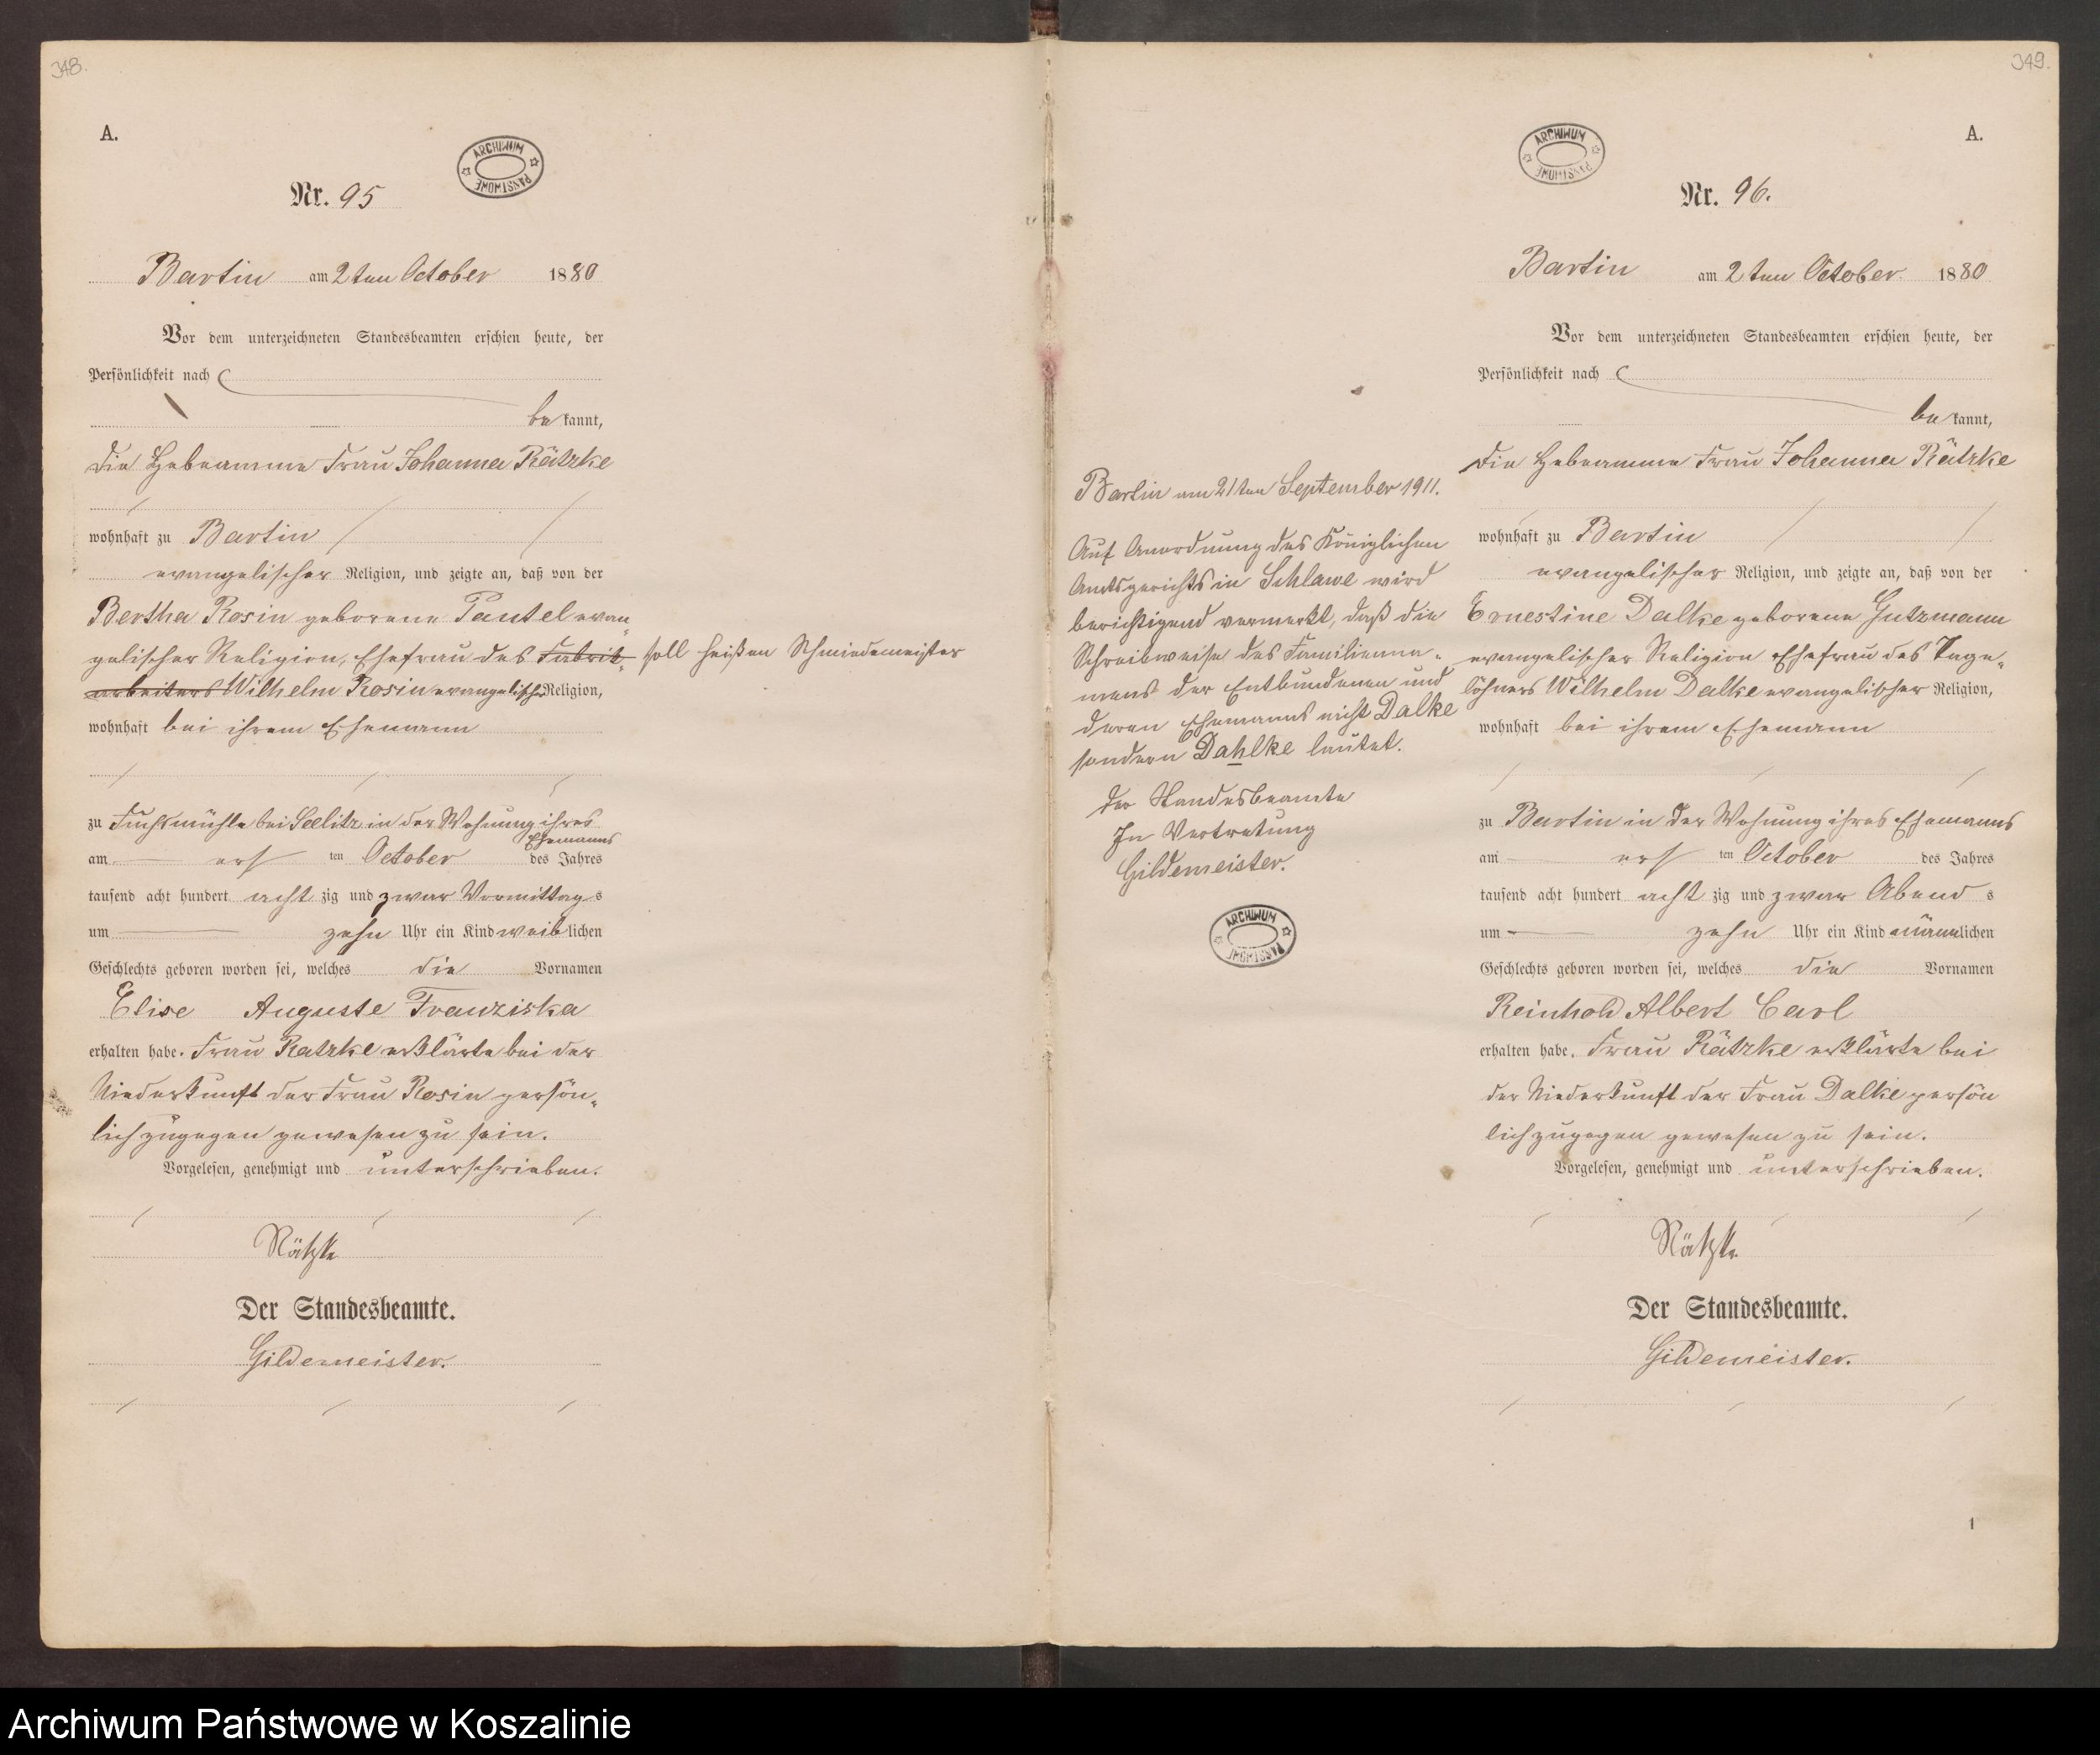 348.
A.
ARCHIWUM PAŃSTWOWE
Nr. 95
Bartin am 2ten October 1880
Vor dem unterzeichneten Standesbeamten erschien heute, der
Persönlichkeit nach
bekannt,
die Hebeamme Frau Johanna Rätzke
wohnhaft zu Bartin
evangelischer Religion, und zeigte an, daß von der
Bertha Rosin geborene Pautel evan„
gelischer Religion, Ehefrau des Fabrik„ soll heißen Schmiedemeister
arbeiters Wilhelm Rosin evangelischer Religion,
wohnhaft bei ihrem Ehemann
zu Fuchsmühle bei Seelitz in der Wohnung ihres
Ehemanns
am ersten October des Jahres
tausend acht hundert achtzig und zwar Vormittags
um zehn Uhr ein Kind weiblichen
Geschlechts geboren worden sei, welches die Vornamen
Elise Auguste Franziska
erhalten habe. Frau Ratzke erklärte bei der
Niederkunft der Frau Rosin persön„
lich zugegen gewesen zu sein.
Vorgelesen, genehmigt und unterschrieben.
Rätzke
Der Standesbeamte.
Gildemeister.
349.
A.
ARCHIWUM PAŃSTWOWE
Nr. 96.
Bartin am 2ten October 1880
Vor dem unterzeichneten Standesbeamten erschien heute, der
Persönlichkeit nach
bekannt,
die Hebeamme Frau Johanna Rätzke
wohnhaft zu Bartin
evangelischer Religion, und zeigte an, daß von der
Ernestine Dalke geborene Gutzmann
evangelischer Religion Ehefrau des Tage„
löhners Wilhelm Dalke evangelischer Religion,
wohnhaft bei ihrem Ehemann
zu Bartin in der Wohnung ihres Ehemanns
am ersten October des Jahres
tausend acht hundert achtzig und zwar Abends
um zehn Uhr ein Kind männlichen
Geschlechts geboren worden sei, welches die Vornamen
Reinhold Albert Carl
erhalten habe. Frau Rätzke erklärte bei
der Niederkunft der Frau Dalke persön
lich zugegen gewesen zu sein.
Vorgelesen, genehmigt und unterschrieben.
Rätzke
Der Standesbeamte.
Gildemeister.
1
Bartin am 21ten September 1911.
Auf Anordnung des Königlichen
Amtsgerichts in Schlawe wird
berichtigend vermerkt, daß die
Schreibweise des Familienna„
mens der Entbundenen und
deren Ehemanns nicht Dalke
sondern Dahlke lautet.
Der Standesbeamte
In Vertretung
Gildemeister.
ARCHIWUM PAŃSTWOWE
Archiwum Państwowe w Koszalinie